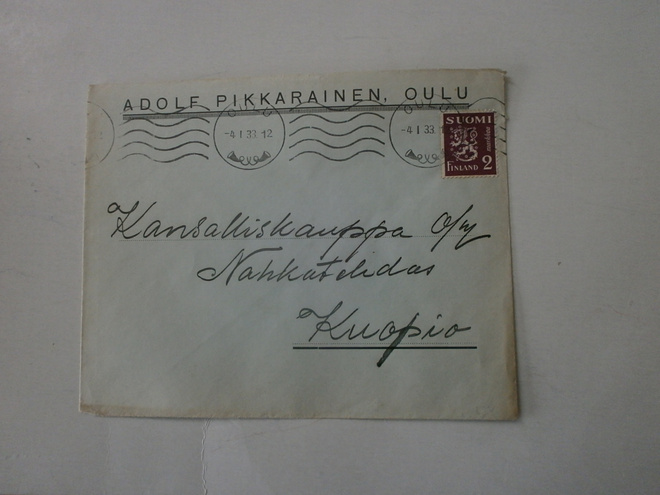 ADOLF PIKKARAINEN, OULU
OULU
-4 I 33 12
OULU
-4 I 33 1
SUOMI
markkaa
FINLAND 2
Kansalliskauppa O/y
Nahkatehdas
Kuopio